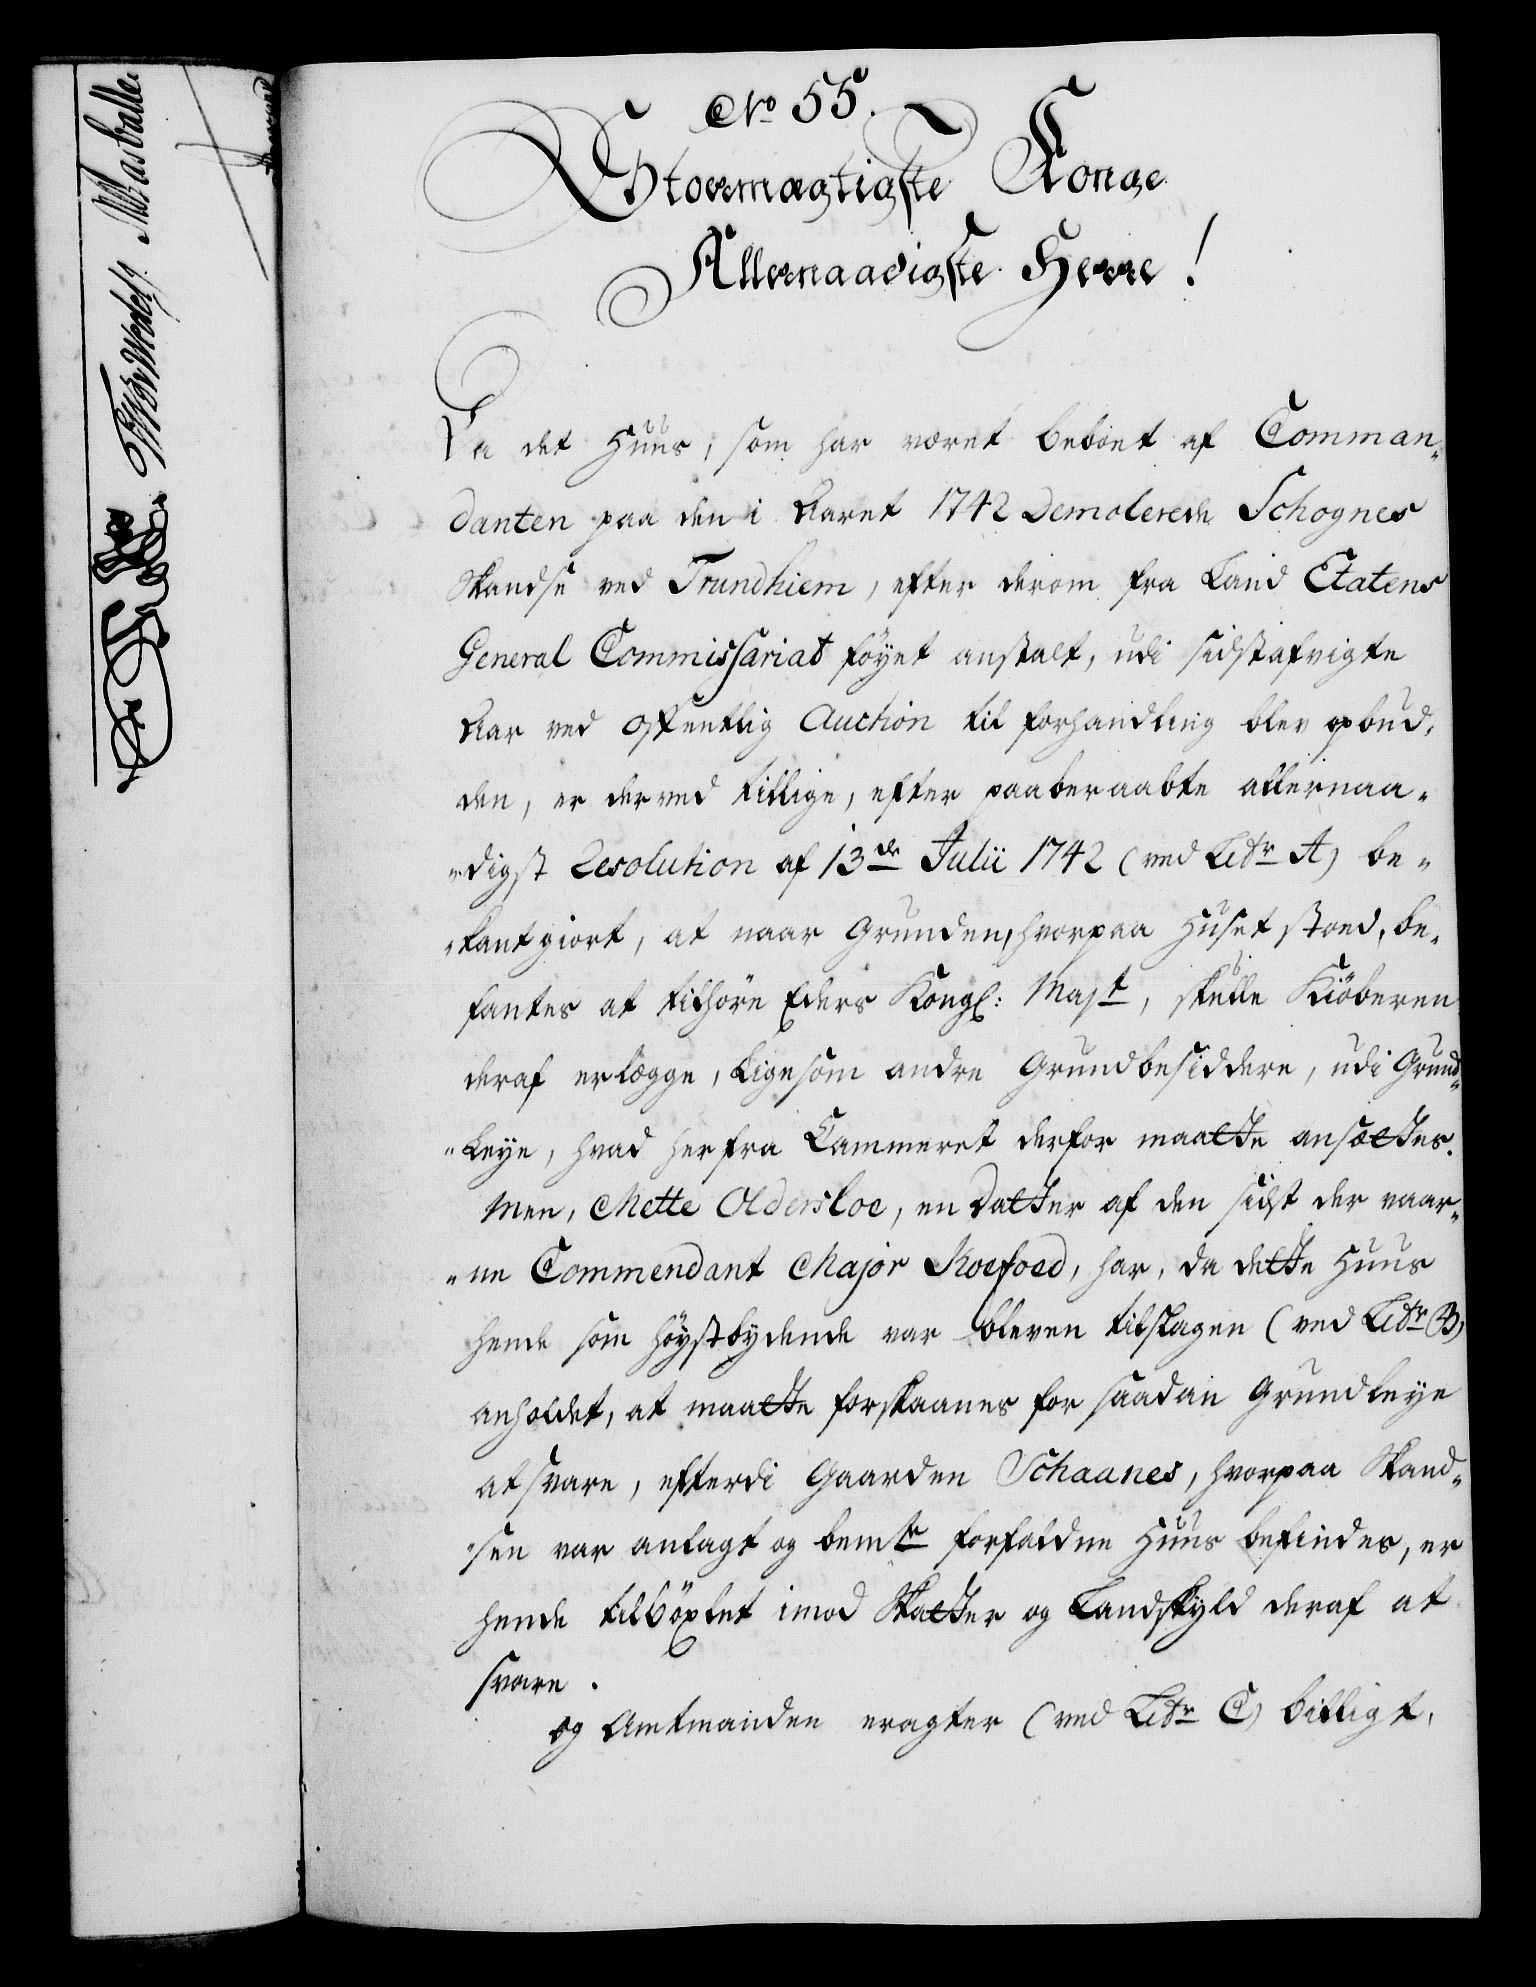 No 55.
Stormægtigste Konge
Allernaadigste Herre!
Da det Huus, som har været beboet af Comman-
danten paa den i Aaret 1742 Demolerede Schognes
Skandse ved Trundhiem, efter derom fra Land Etatens
General Commissariat föyet anstalt, udi sidstafvigte
Aar ved offentlig Auction til forhandling blev opbud-
den, er derved tillige, efter paaberaabte allernaa-
-digst Resolution af 13de Julii 1742 (ved Litr A) be-
-kantgiort, at naar Grunden, hvorpaa Huset stoed, be-
fantes at tilhöre Eders Kongl: Majt, skulle Kiöberen
deraf erlægge, ligesom andre Grundbesiddere, udi Grund-
-Leye, hvad herfra Cammeret derfor maatte ansættes.
Men, Mette Oldersloe, en Datter af den sidst der vaar-
-ne Commendant Major Koefoed, har, da dette Huus
hende som höystbydende var bleven tilslagen (ved Litr B)
anholdet, at maatte forskaanes for saadan Grundleye
at svare, efterdi Gaarden Schaanes, hvorpaa Skand-
-sen var anlagt og bemte forfaldne Huus befindes, er
hende tilböxlet imod Skatter og Landskyld deraf at
svare.
og Amtmanden eragter (ved Litr C) billigt,